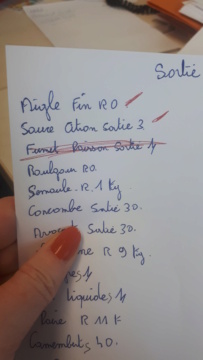 Sortie
Aigle Fin R0
Sauce Citron Sortie 3
Fumet Poisson Sortie 1
Boulgour R0
Semoule R 1 Kg
Concombre Sortie 30
Sortie 30
R 9 Kg
liquides 1
R 11 K
Camemberts 40